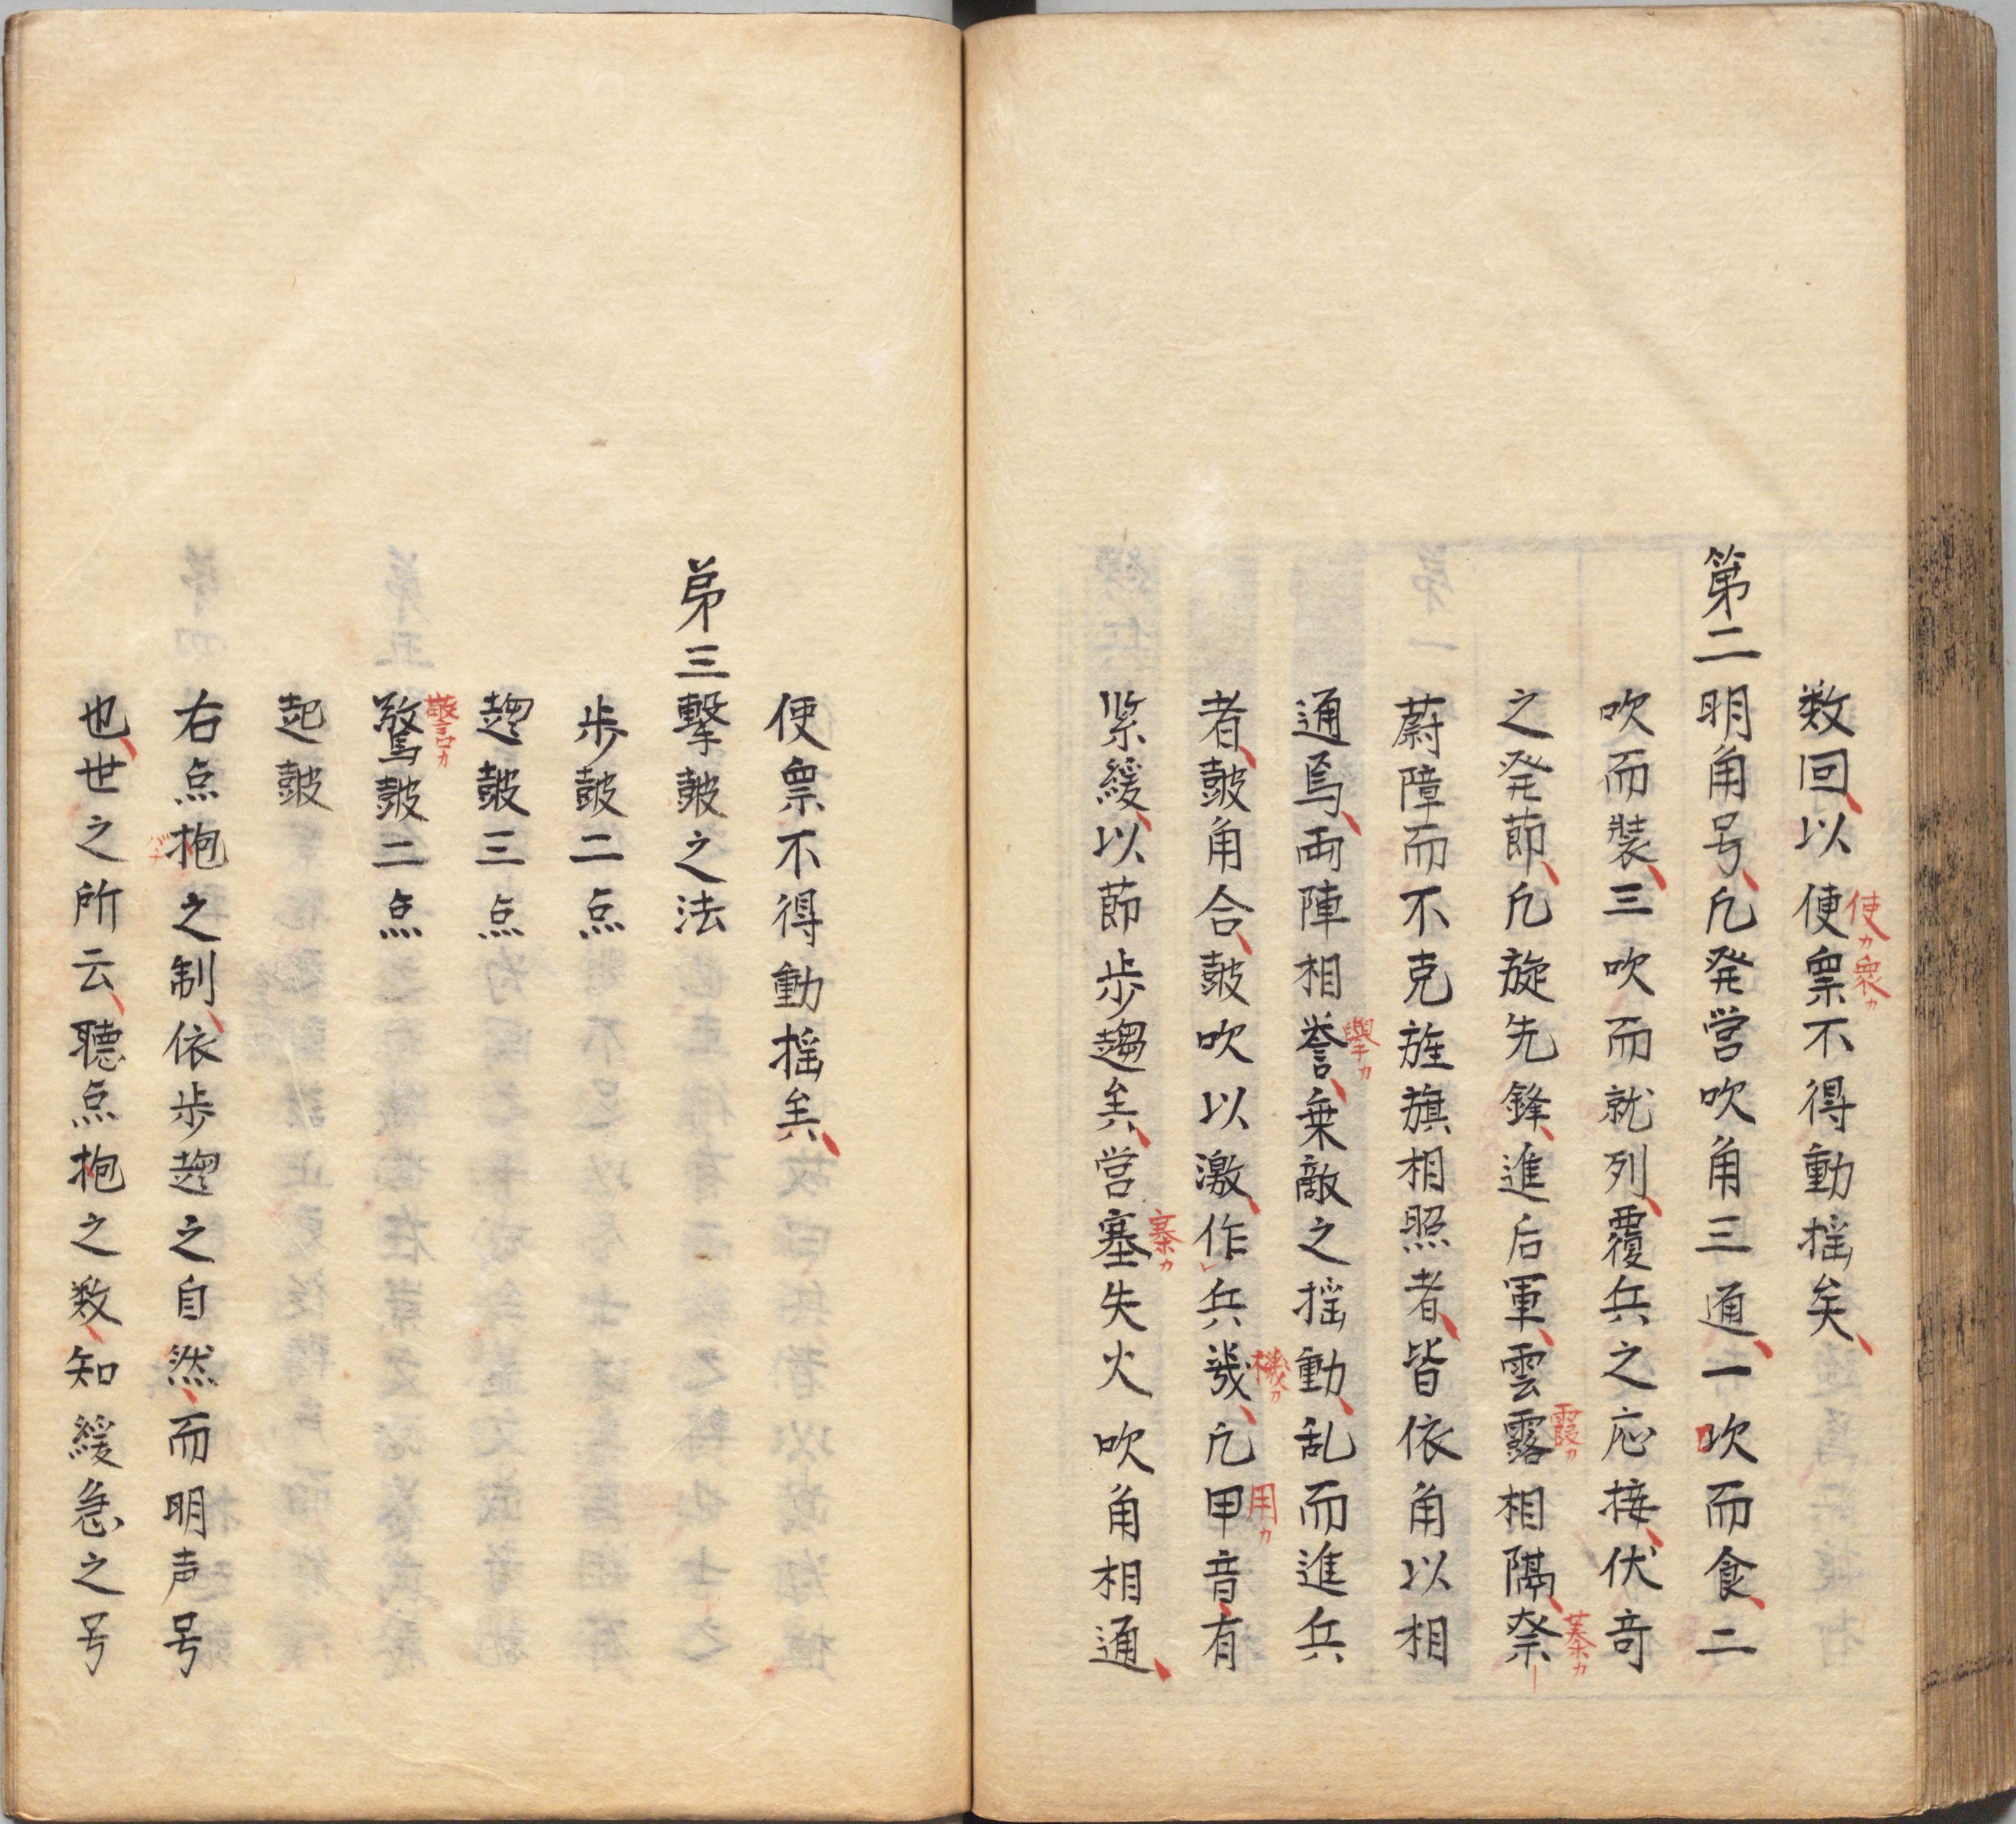 数回以便票不得動揺矣
使カ衆カ
第二明角号凢発営吹角三通一吹而食二
吹而装三吹而就列覆兵之応接伏竒
之発節凢旋先鋒進后軍雲露相隔祭
霞カ
蓁カ
蔚障而不克旌旗相照者皆依角以相
通焉両陣相誉乗敵之揺動乱而進兵
擧カ
者皷角合皷吹以激作兵幾凢甲音有
機カ
用カ
紧緩以節歩趨矣営塞失火吹角相通
寨カ
便票不得動揺矣
苐三擊皷之法
歩皷二点
趨皷三点
驚皷二点
警カ
起皷
右点抱之制依歩趨之自然而明声号
バチ
也世之所云聴点抱之数知緩急之号